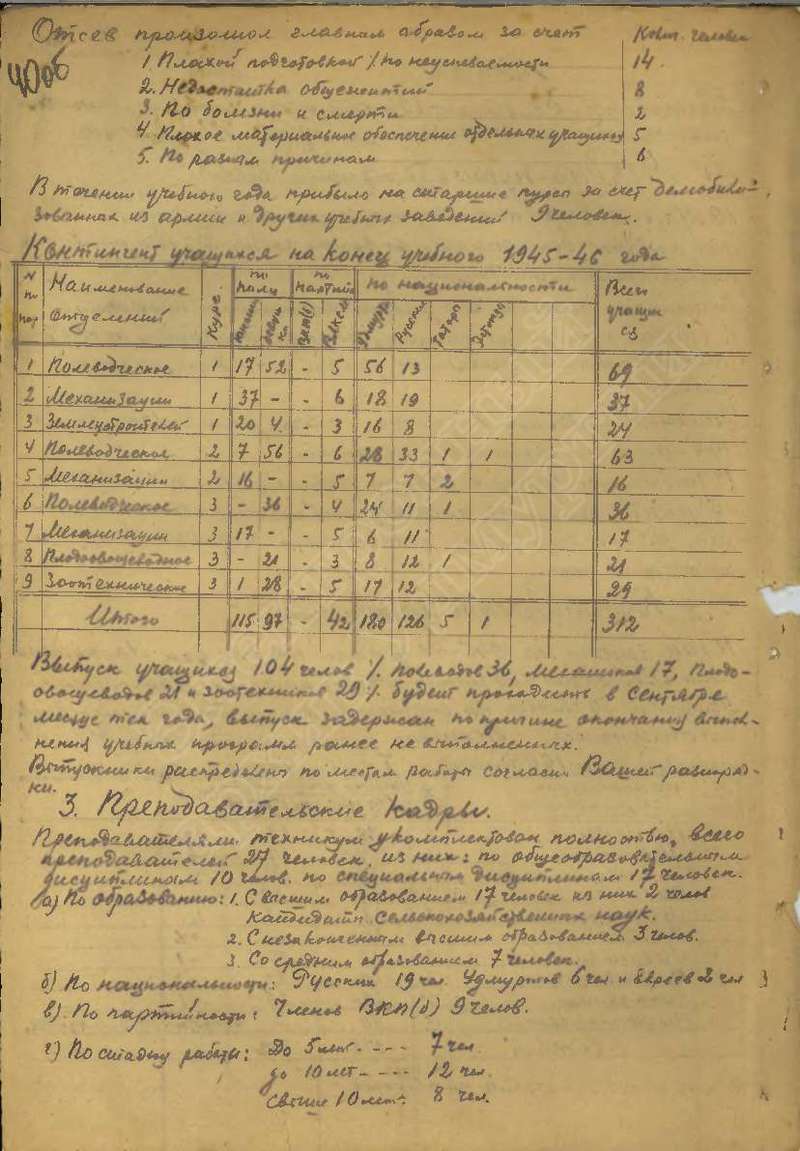 Отсев произошол главным образом за счет Колич. человек
1. Плохой подготовкой /по неуспеваемости 14
400б
2. Недостатка общежитий 8
3. По болезни и смерти 2
4. Плохое материальное обеспечение отдельных учащихся 5
5. По разным причинам 6
В течении учебного года прибыло на старшие курсы за счет демобили-
зованных из армии и других учебных заведений 9 человек.
Контингент учащихся на конец учебного 1945-46 года
N по пор Наименование отделений Курс по полу по партийн по национальности Всего учащихся
Юноши Девушки ВКП(б) ВЛКСМ Удмурт Русских Татары
1 Полеводческое 1 17 52 - 5 56 13 69
2 Механизации 1 37 - - 6 18 19 37
3 Землеустроителей 1 20 4 - 3 16 8 24
4 Полеводческое 2 7 56 - 6 28 33 1 1 63
5 Механизации 2 16 - - 5 7 7 2 16
6 Полеводческое 3 - 36 - 4 24 11 1 36
7 Механизации 3 17 - - 5 6 11 17
8 Плодоовощеводное 3 - 21 - 3 8 12 1 21
9 Зоотехническое 3 1 28 - 5 17 12 29
Итого 115 97 - 42 180 126 5 1 312
Выпуск учащихся 104 челов /. полеводов 36, механиков 17, плодо-
овощеводов 21 и зоотехников 29 /. будет проходить в Сентябре
месяце тек года, выпуск задержан по причине окончания выпол-
нения учебных программ ранее не выполненных.
Выпускники распределены по местам работы согласно Вашей разнаряд-
ки.
3. Преподавательские кадры.
Преподавателями техникум укомплектован полностью, всего
преподавателей 27 человек, из них: по общеобразовательным
дисциплинам 10 челов. по специальным дисциплинам 17 человек.
а) По образованию: 1. С высшим образованием 17 человек из них 2 челов
кандидаты сельскохозяйственных наук.
2. С незаконченным высшим образованием 3 челов.
3. Со средним образованием 7 человек.
б) По национальности: Русских 19 чел Удмуртов 6 чел и Евреев 2 чел
в) По партийности: Членов ВКП(б) 9 челов.
г) По стажу работы: До 5 лет - - - - 7 чел
до 10 лет - - - - 12 чел.
свыше 10 лет: 8 чел.